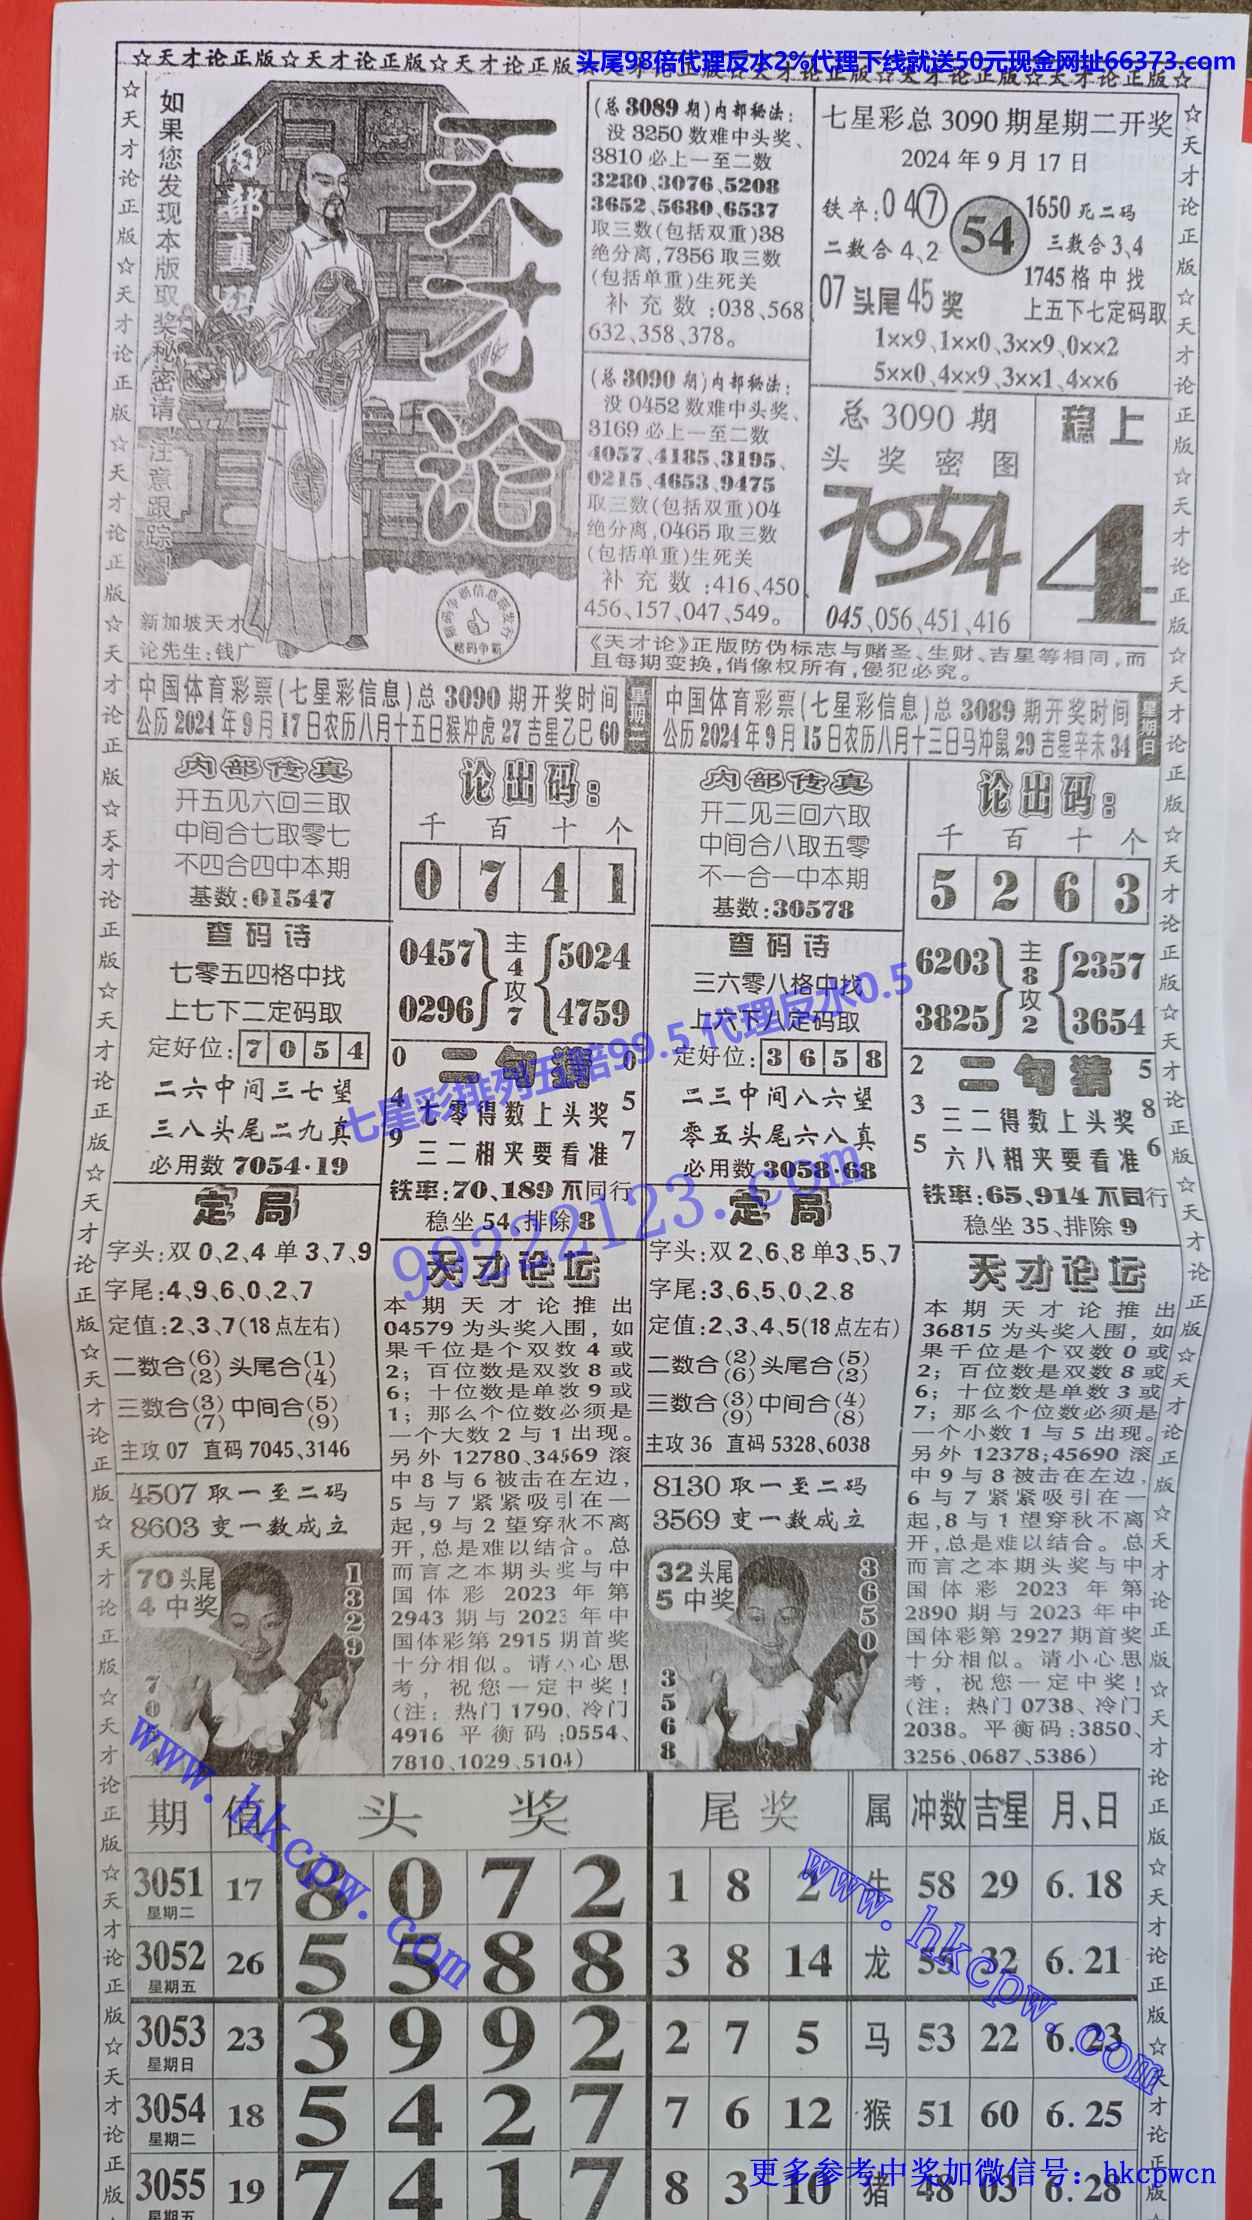 头尾98倍代理反水2%代理下线就送50元现金网址66373.com
☆天才论正版☆天才论正版☆天才论正版☆天才论正版☆天才论正版☆天才论正版☆天才论正版☆
如果您发现本版取奖秘密请注意跟踪
天才论
新加坡天才
论先生:钱广
(总3089期)内部秘法:
没3250数难中头奖、
3810必上一至二数
3280、3076、5208
3652、5680、6537
取三数(包括双重)38
绝分离,7356取三数
(包括单重)生死关
补充数:038、568
632、358、378。
(总3090期)内部秘法:
没0452数难中头奖、
3169必上一至二数
4057、4185、3195、
0215、4653、9475
取三数(包括双重)04
绝分离,0465取三数
(包括单重)生死关
补充数:416、450
456、157、047、549。
七星彩总3090期星期二开奖
2024年9月17日
铁卒:04⑦
二数合4、2
54
1650死二码
三数合3、4
1745格中找
07头尾45奖
上五下七定码取
1××9、1××0、3××9、0××2
5××0、4××9、3××1、4××6
总3090期
头奖密图
7054
045、056、451、416
稳上
4
《天才论》正版防伪标志与赌圣、生财、吉星等相同,而
且每期变换,俏像权所有,侵犯必究。
中国体育彩票(七星彩信息)总3090期开奖时间
公历2024年9月17日农历八月十五日猴冲虎27吉星乙巳60
星期二
中国体育彩票(七星彩信息)总3089期开奖时间
公历2024年9月15日农历八月十三日马冲鼠29吉星辛未34
星期日
内部传真
开五见六回三取
中间合七取零七
不四合四中本期
基数:01547
查码诗
七零五四格中找
上七下二定码取
定好位:7054
二六中间三七望
三八头尾二九真
必用数7054·19
论出码:
千 百 十 个
0 7 4 1
0457 主4攻7 5024
0296 4759
二句猜
0 4 9
0 5 7
七零得数上头奖
三二相夹要看准
铁率:70、189不同行
稳坐54、排除8
内部传真
开二见三回六取
中间合八取五零
不一合一中本期
基数:30578
查码诗
三六零八格中找
上六下八定码取
定好位:3658
二三中间八六望
零五头尾六八真
必用数3058·68
论出码:
千 百 十 个
5 2 6 3
6203 主8攻2 2357
3825 3654
二句猜
2 3 5
5 8 6
三二得数上头奖
六八相夹要看准
铁率:65、914不同行
稳坐35、排除9
七星彩排列五赔99.5 代理反水0.5
90222123.com
定局
字头:双0、2、4单3、7、9
字尾:4、9、6、0、2、7
定值:2、3、7(18点左右)
二数合(6)(2)头尾合(1)(4)
三数合(3)(7)中间合(5)(9)
主攻07 直码7045、3146
4507取一至二码
8603变一数成立
70头尾
4中奖
1329
天才论坛
本期天才论推出
04579为头奖入围，如
果千位是个双数4或
2；百位数是双数8或
6；十位数是单数9或
1；那么个位数必须是
一个大数2与1出现。
另外12780、34569滚
中8与6被击在左边,
5与7紧紧吸引在一
起,9与2望穿秋不离
开,总是难以结合。总
而言之本期头奖与中
国体彩2023年第
2943期与2023年中
国体彩第2915期首奖
十分相似。请小心思
考，祝您一定中奖！
(注：热门1790、冷门
4916平衡码:0554、
7810、1029、5104)
定局
字头:双2、6、8单3、5、7
字尾:3、6、5、0、2、8
定值:2、3、4、5(18点左右)
二数合(2)(6)头尾合(5)(2)
三数合(3)(9)中间合(4)(8)
主攻36 直码5328、6038
8130取一至二码
3569变一数成立
32头尾
5中奖
3650
3568
天才论坛
本期天才论推出
36815为头奖入围，如
果千位是个双数0或
2；百位数是双数8或
6；十位数是单数3或
7；那么个位数必须是
一个小数1与5出现。
另外12378;45690滚
中9与8被击在左边,
6与7紧紧吸引在一
起,8与1望穿秋不离
开,总是难以结合。总
而言之本期头奖与中
国体彩2023年第
2890期与2023年中
国体彩第2927期首奖
十分相似。请小心思
考，祝您一定中奖！
(注：热门0738、冷门
2038。平衡码:3850、
3256、0687、5386)
www.hkcpw.com
www.hkcpw.com
期 值 头奖 尾奖 属 冲数 吉星 月、日
3051 星期二 17 8 0 7 2 1 8 2 牛 58 29 6.18
3052 星期五 26 5 5 8 8 3 8 14 龙 55 32 6.21
3053 星期日 23 3 9 9 2 2 7 5 马 53 22 6.23
3054 星期二 18 5 4 2 7 7 6 12 猴 51 60 6.25
3055 星期五 19 7 4 1 7 8 3 10 猪 48 03 6.28
更多参考中奖加微信号：hkcpwcn